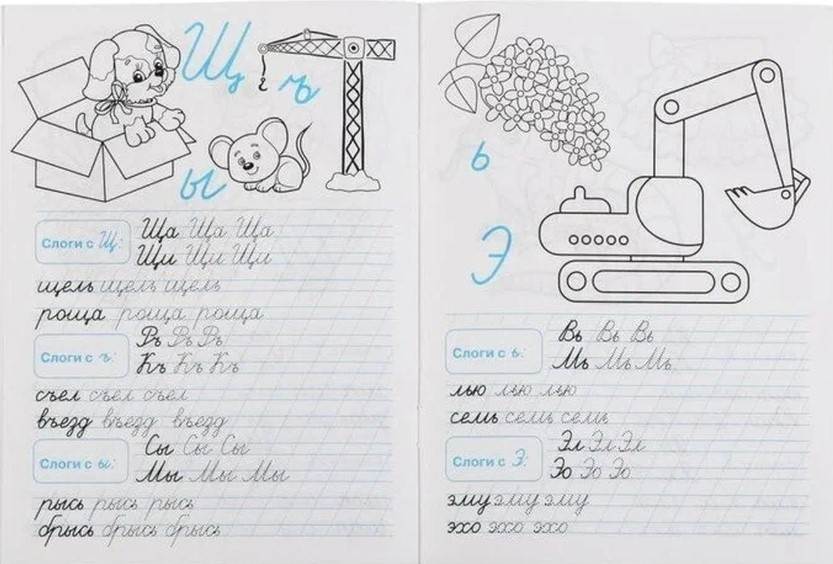 Щ
ъ
ы
Слоги с Щ:
Ща Ща Ща
Щи Щи Щи
щель щель щель
роща роща роща
Слоги с ъ:
Ръ Ръ Ръ
Къ Къ Къ
съел съел съел
въезд въезд въезд
Слоги с ы:
Сы Сы Сы
Мы Мы Мы
рысь рысь рысь
брысь брысь брысь
ь
Э
Слоги с ь:
Вь Вь Вь
Мь Мь Мь
лью лью лью
семь семь семь
Слоги с Э:
Эл Эл Эл
Эо Эо Эо
эму эму эму
эхо эхо эхо